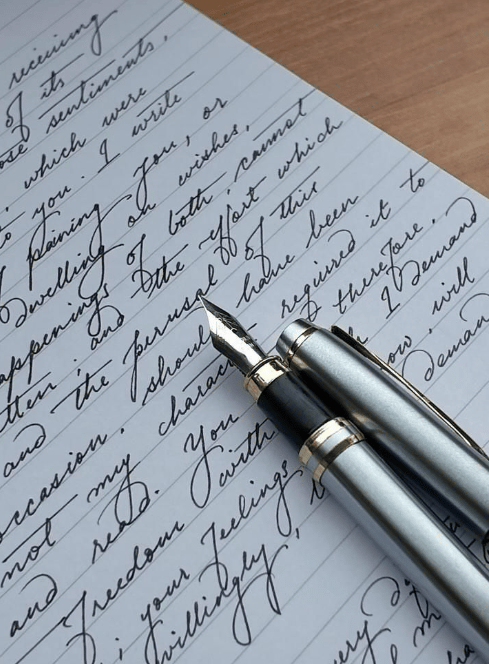 receiving
of its
ose sentiments,
which were
to you. I write
paining you, or
Dwelling on wishes,
appenings of both, cannot
tten: and Dthe effort which
and the perusal of this
occasion, should have been
not my charac required it to
and read. You therefore,
Freedom with h I Demand
; your feelings ow, will
willingly, deman
very